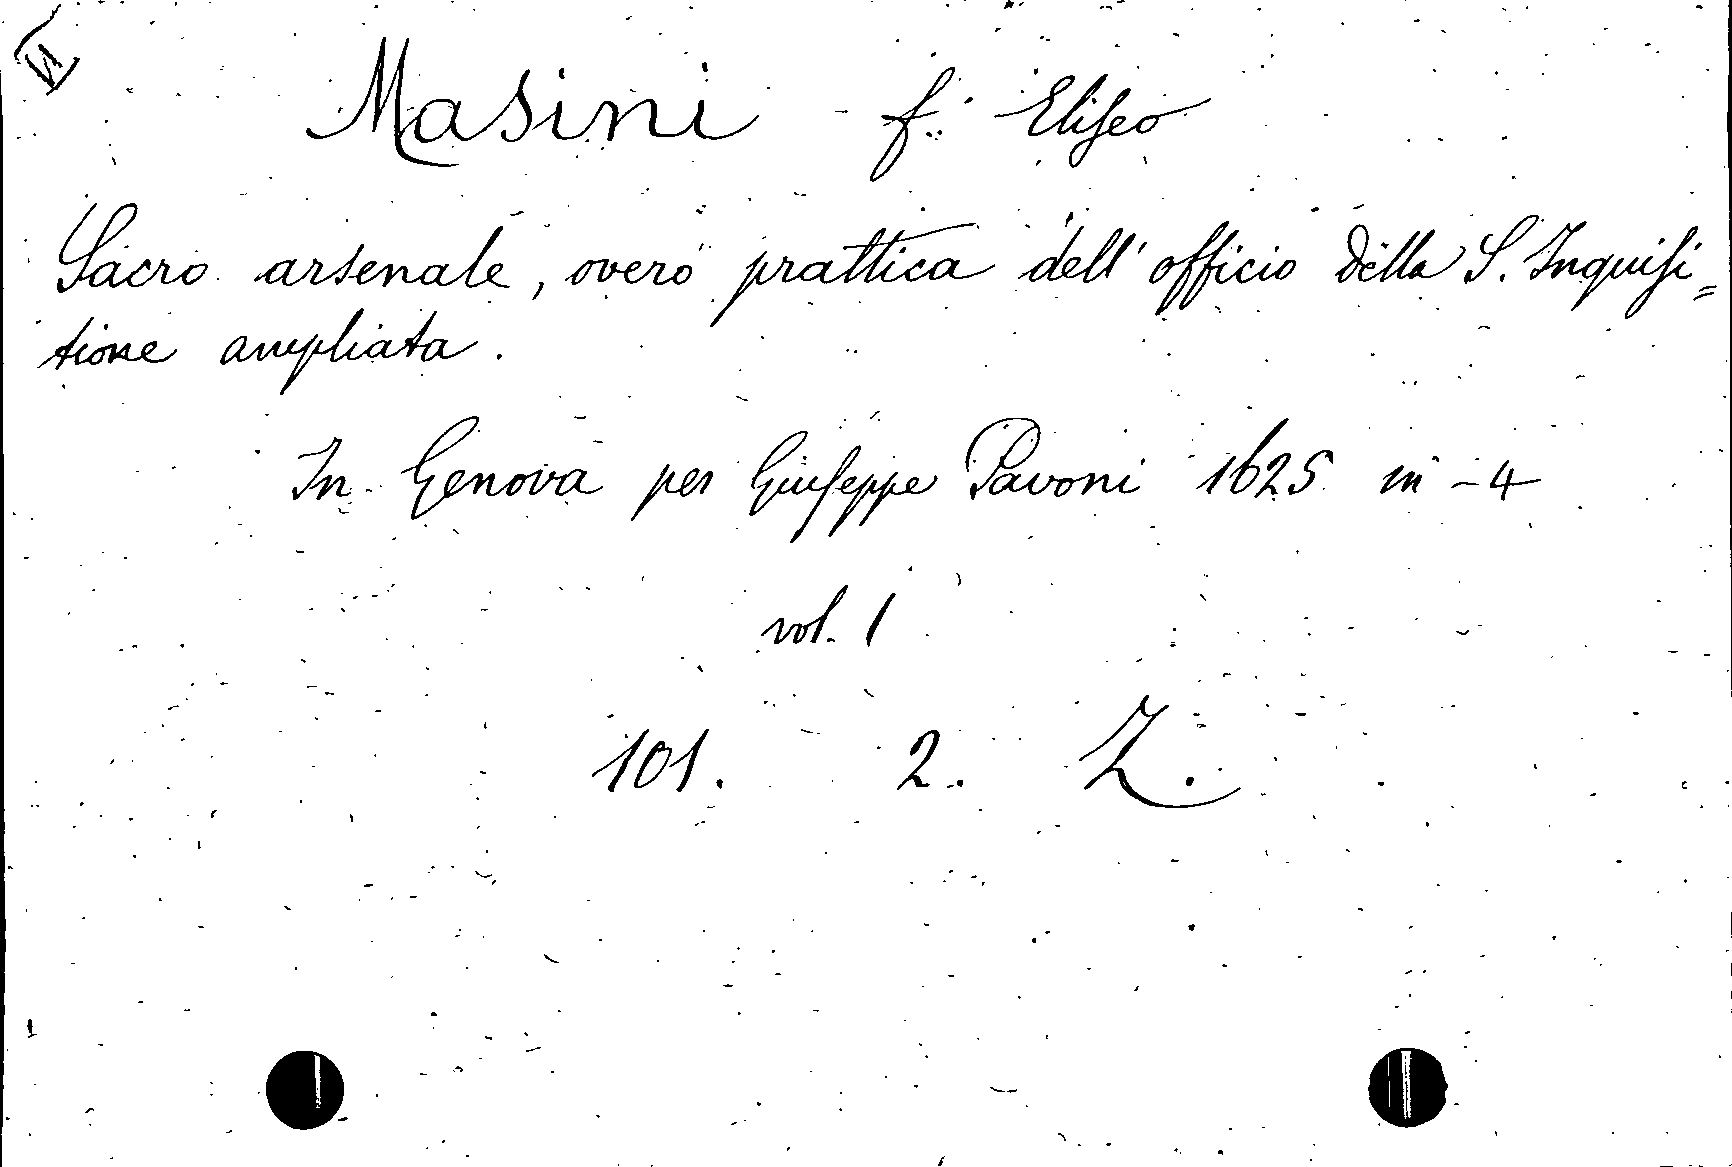 Masini f. Eliseo
Sacro arsenale, overo prattica dell' officio della S. Inquisi=
tione ampliata.
In Genova per Giuseppe Pavoni 1625 in-4
vol. 1
101. 2. Z.